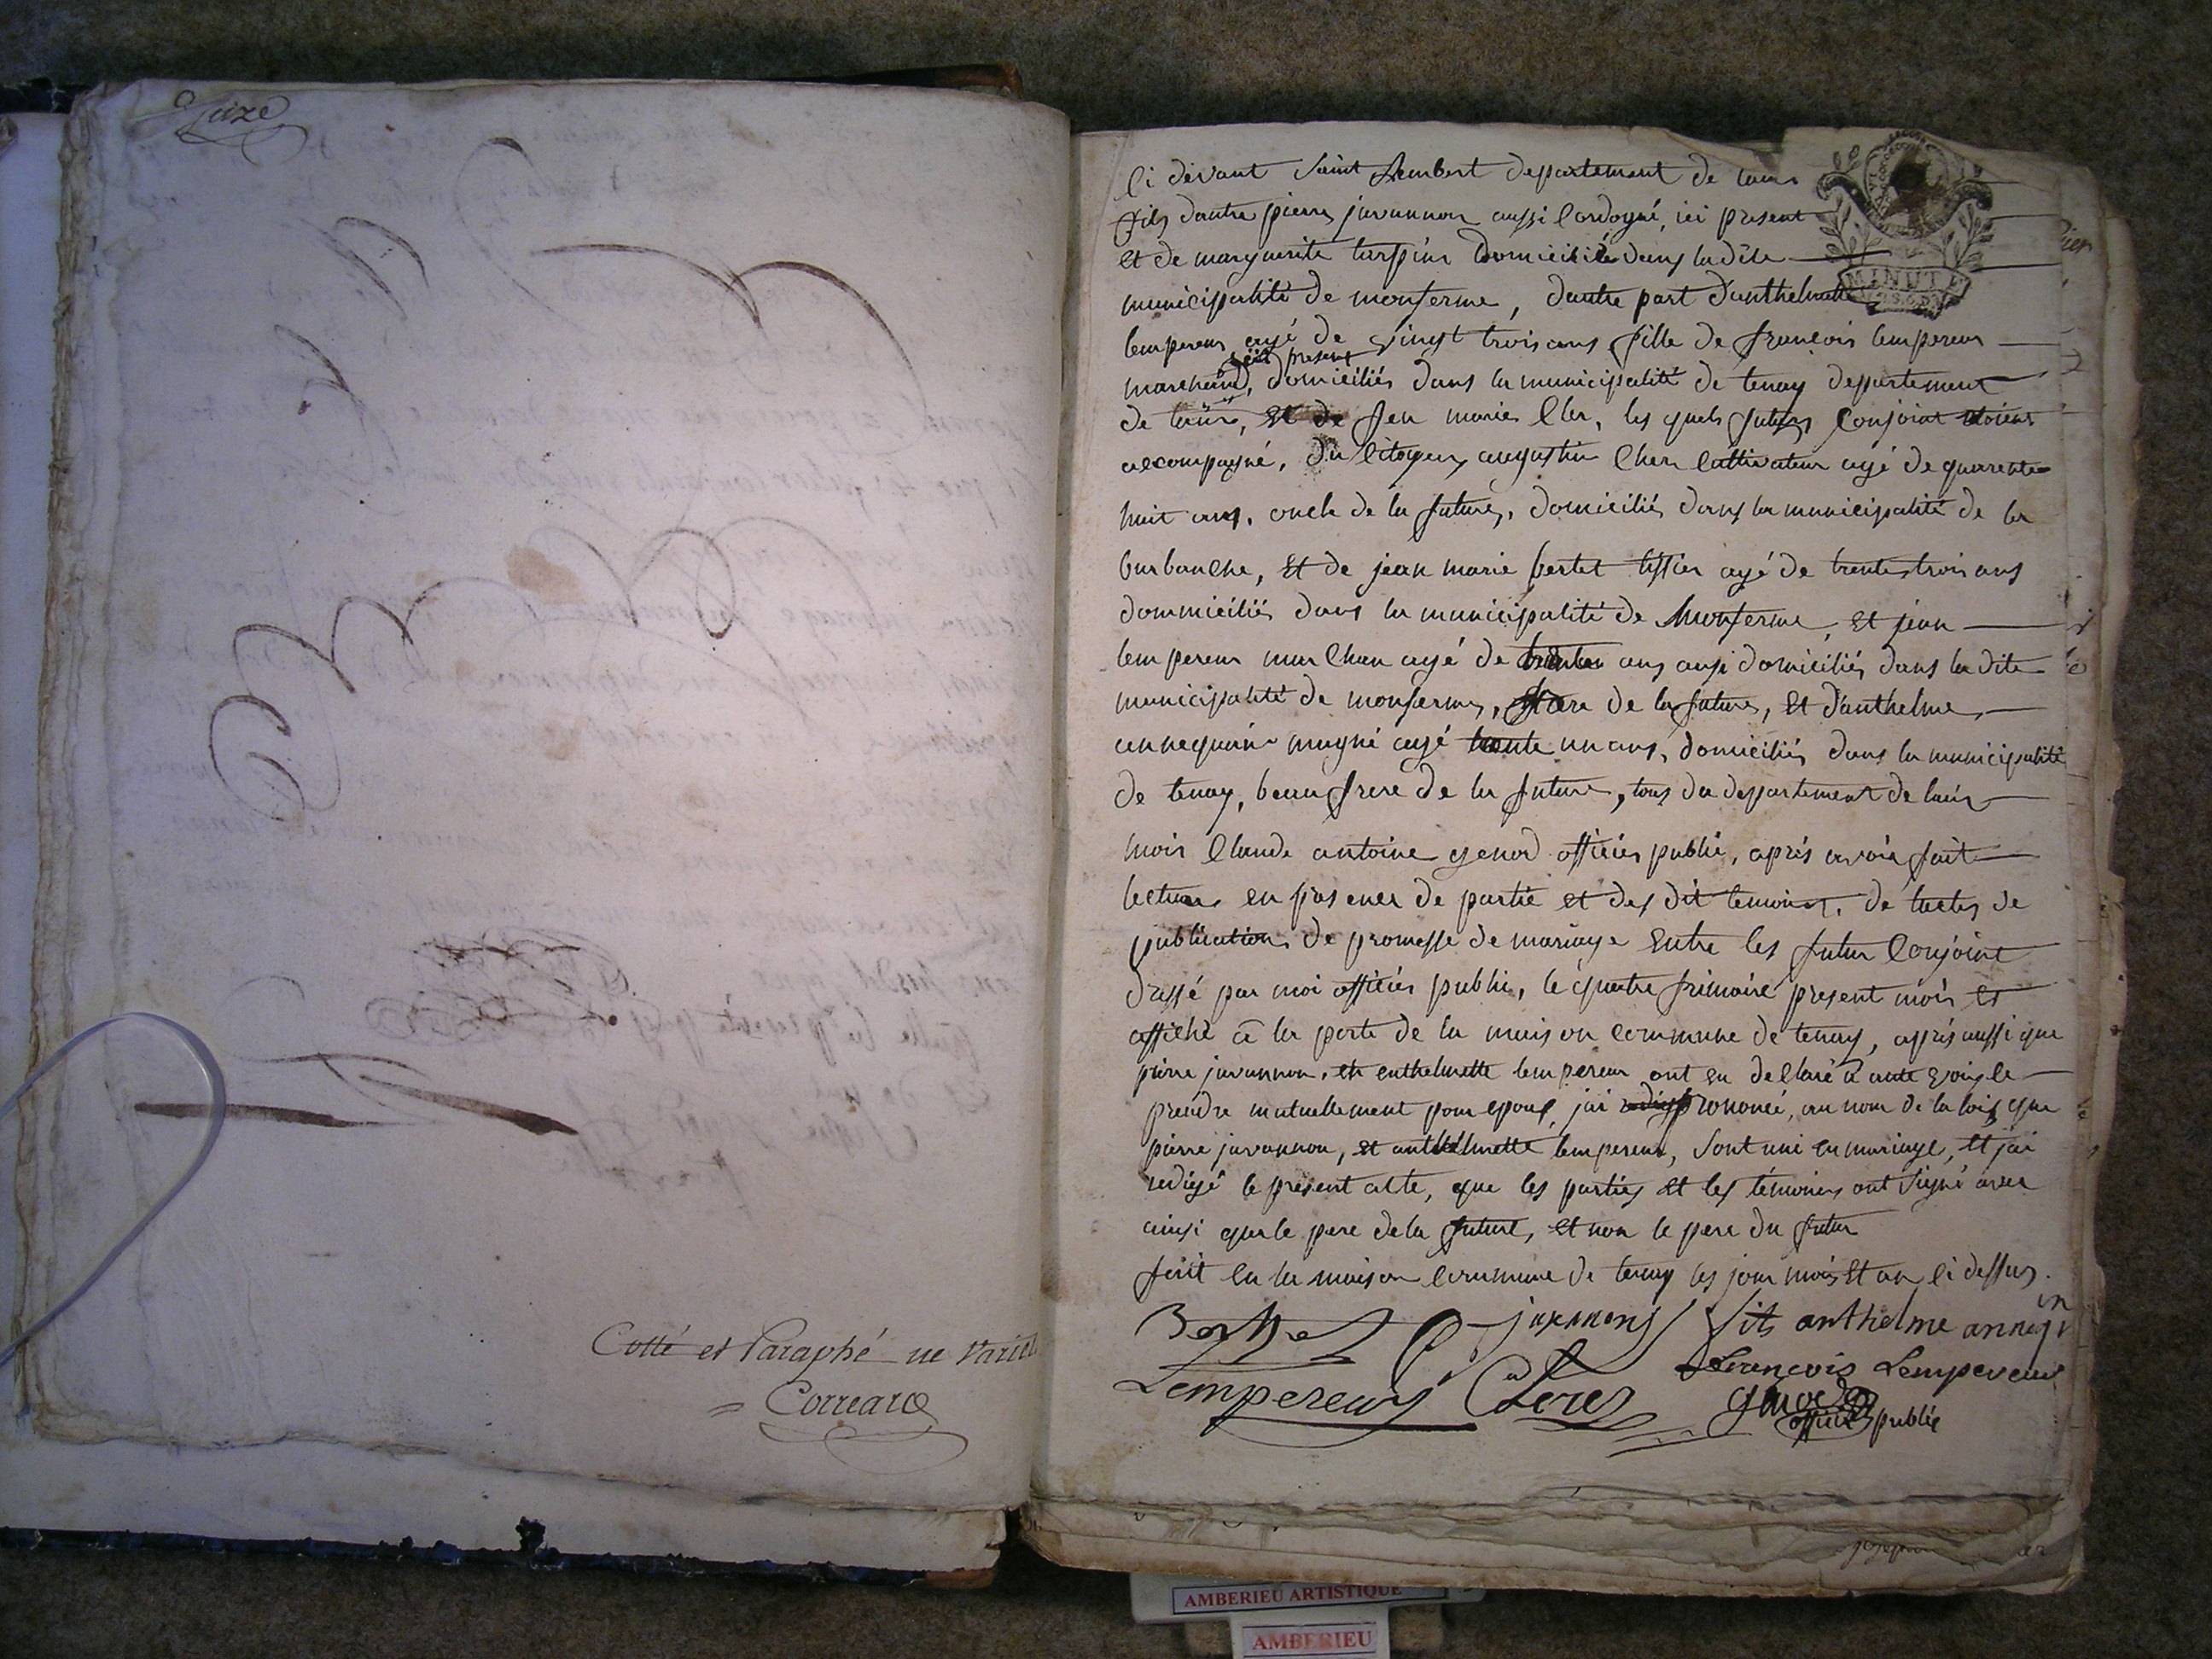 Cotté et Paraphé ne Variet
Correard
MINUTE
Ci devant Saint Rembert departement de lain
fils dautre pierre juvannon aussi Cordogné, ici present
et de marguerite tarpin domicilié dans ladite
municipalité de monferme, dautre part d'anthelmette
lempereur agé de vingt trois ans fille de françois lempereur
ici present
marchand, domiciliés dans la municipalité de tenay departement
de lain, et de feu marie Cler, les quels futurs Conjoint etoient
accompagné, du Citoyen augustin Cler Cultivateur agé de quarente
huit ans, oncle de la future, domiciliés dans la municipalité de la
burbanche, et de jean marie bertet tissier agé de trente trois ans
dommiciliés dans la municipalité de Monferme, et jean
lempereur marchan agé de ans ausi domiciliés dans la dite
municipalité de monferme, frere de la future, et d'anthelme
annequin magné agé trente un ans, domiciliés dans la municipalité
de tenay, beau frere de la future, tous du departement de lain
moir Claude antoine genod officier public, aprés avoir fait
lecture en presence de partie et des dit temoins, de lactes de
publication de promesse de mariage entre les futur Conjoint
dressé par moi officier public, le quatre frimaire present mois et
affiché à la porte de la maison commune de tenay, aprés aussi que
pierre juvannon, et enthelmette lempereur ont eu declaré à aute voix se
prendre mutuellement pour epoux, jai prononcé, au nom de la loix que
pierre juvannon, et anthelmette lempereur, sont uni en mariage, et jai
redigé le present acte, que les parties et les témoins ont signé avec
ainsi que le pere de la future, et non le pere du futur
fait en la maison commune de tenay les jour mois et an ci dessus.
Bertet juvanon fils anthelme annequin
françois Lempereur
Lempereur Clerc genod
officier public
AMBERIEU ARTISTIQUE
AMBERIEU